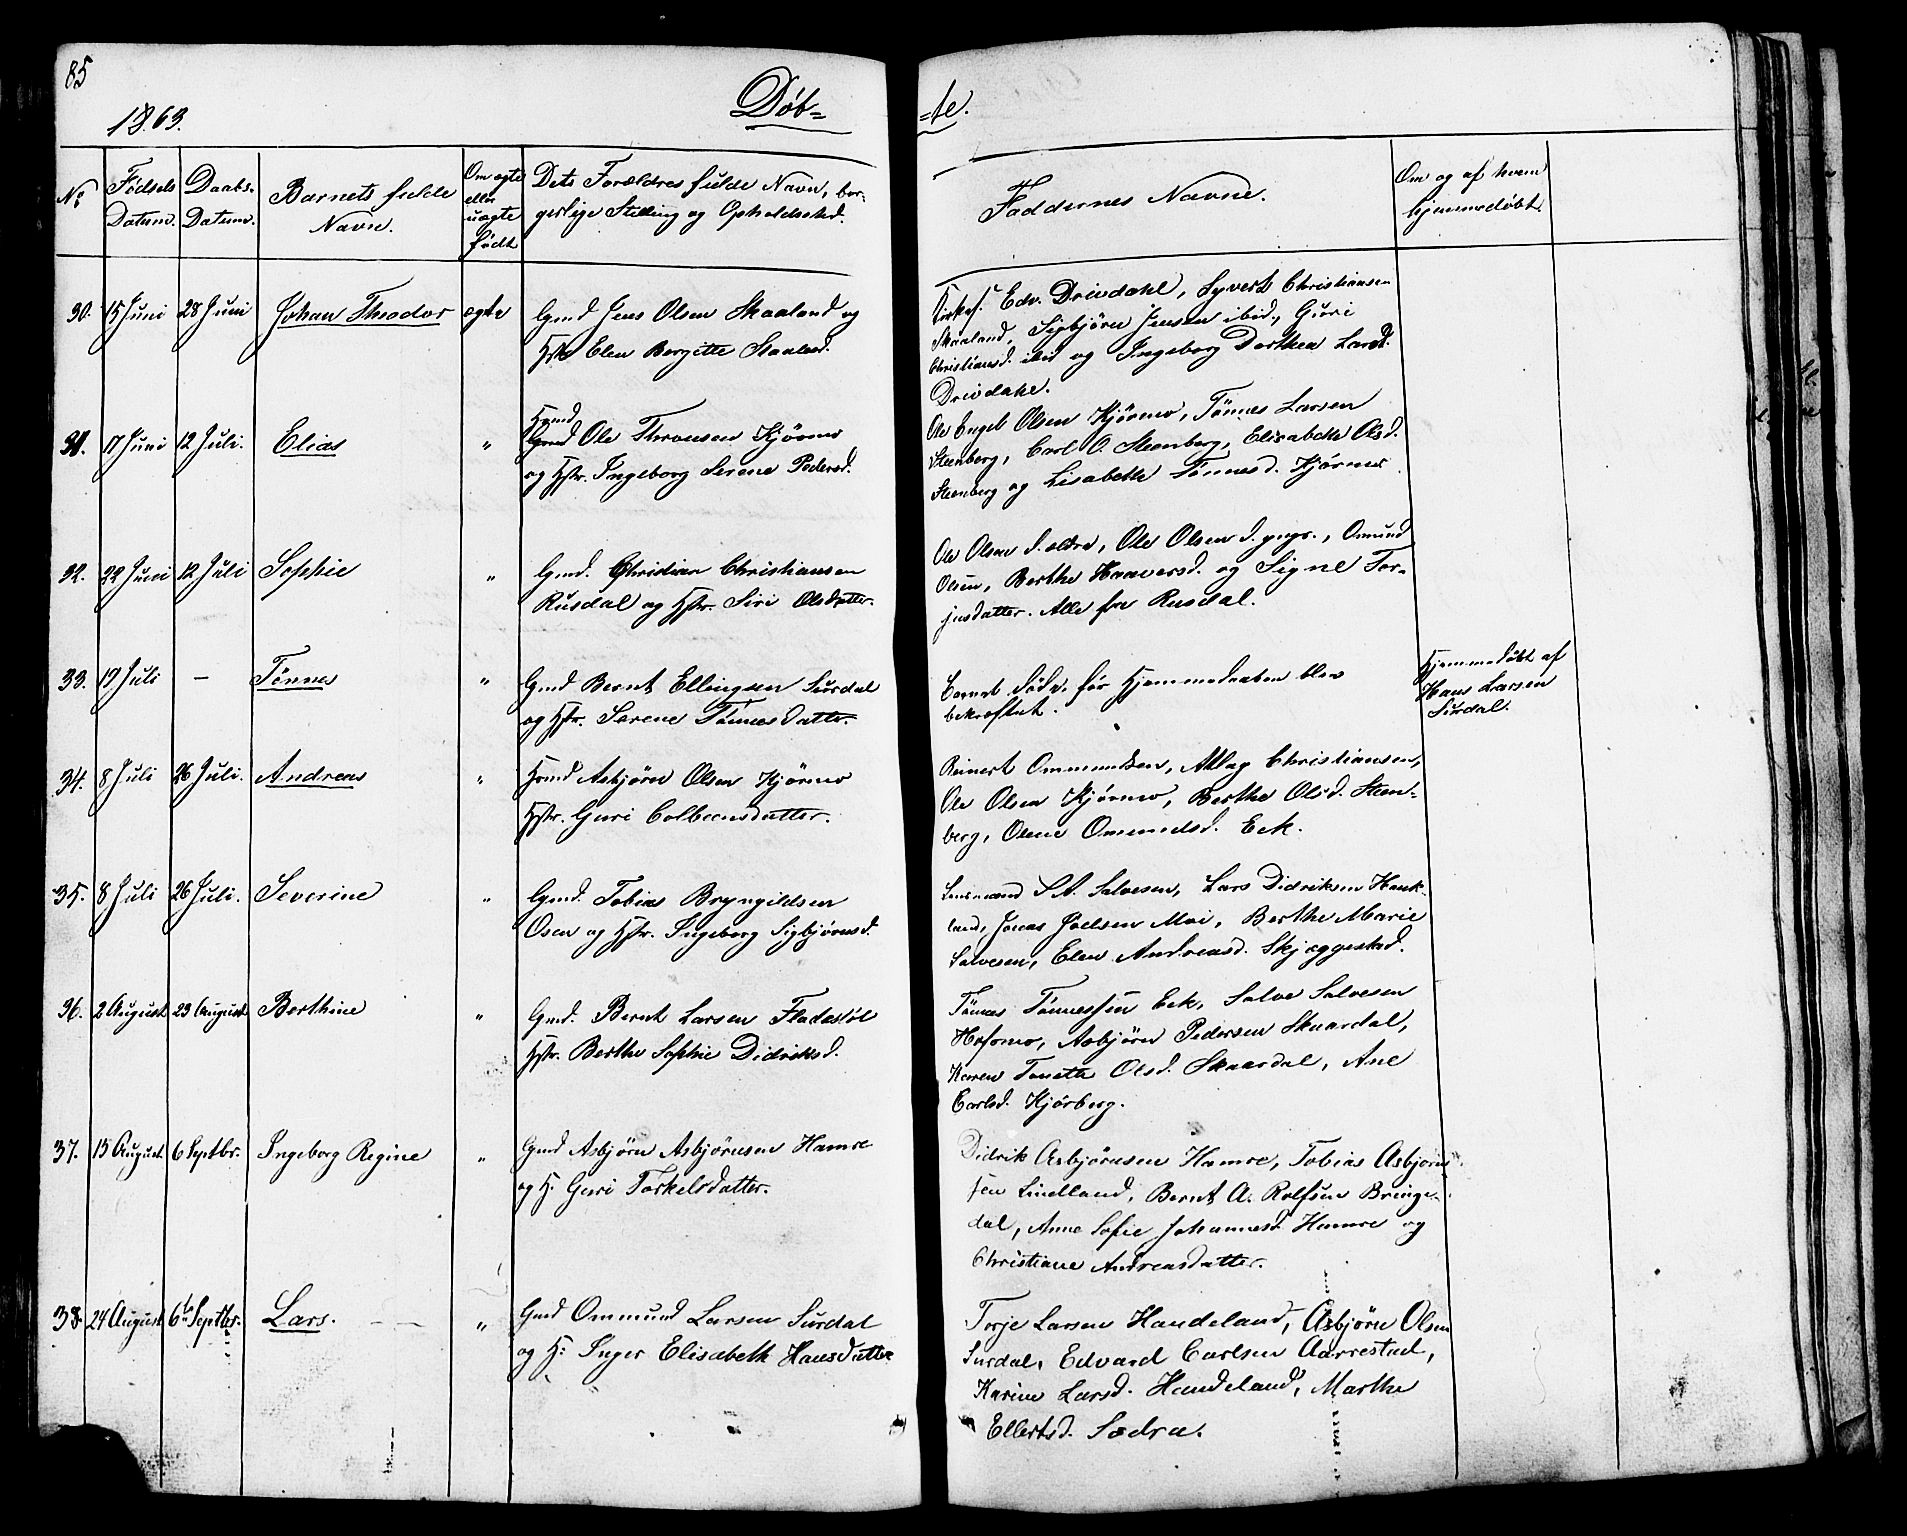 85
1863.
Døb=
=te.
No
Fødsels Datum.
Daabs- Datum.
Barnets fulde Navn.
Om ægte eller uægte født
Dets Forældres fulde Navn, bor-
gerlige Stilling og Opholdssted.
Faddernes Navne.
Om og af hvem
hjemmedøbt.
30. 15 Juni 28 Juni Johan Theodor ægte Gmd Jens Olsen Skaaland og
Hst. Elen Bergitte Staalesd.
Kirkes. Edv. Drivdahl, Syvert Christiansen
Skaaland, Sigbjörn Jensen ibid, Guri
Christiansd. ibid og Ingeborg Dorthea Larsd.
Drivdahl.
31. 17 Juni 12 Juli. Elias " Hmd
Gmd Ole Thronsen Kjörmo
og Hstr. Ingeborg Serene Pedersd.
Ole Engel Olsen Kjörmo, Tönnes Larsen
Steenberg, Carl O. Steenberg, Elisabeth Olsd.
Steenberg og Lisabeth Tönnesd. Kjörmo
32. 22 Juni 12 Juli Sophie " Gmd. Christian Christiansen
Rusdal og Hstr. Siri Olsdatter.
Ole Olsen d. ældre, Ole Olsen d. yngr., Omund
Olsen, Berthe Haaversd. og Signe Tor-
jusdatter. Alle fra Rusdal.
33. 19 Juli — Tönnes " Gmd Bernt Ellingsen Surdal
og Hstr. Serene Tönnesdatter.
Barnet döde før Hjemmedaaben blev
bekræftet.
Hjemmedöbt af
Hans Larsen
Surdal.
34. 8 Juli 26 Juli. Andreas " Hmd Asbjörn Olsen Kjörmo
Hstr. Guri Colbeensdatter.
Reinert Ommundsen, Atlag Christiansen,
Ole Olsen Kjörmo, Berthe Olsd. Steen-
berg, Olene Ommundsd. Eek.
35. 8 Juli 26 Juli. Severine " Gmd. Tobias Bryngildsen
Osen og Hstr. Ingeborg Sigbjörnsd.
Lensmand S A. Salvesen, Lars Didriksen Hauk-
land, Jonas Joelsen Moi, Berthe Marie
Salvesen, Elen Andreasd. Skjæggestad.
36. 2 August 23 August Berthine " Gmd. Bernt Larsen Fladstöl
Hstr. Berthe Sophie Didriksd.
Tönnes Tönnessen Eek, Salve Salvesen
Hofsmo, Asbjörn Pedersen Skaardal,
Karen Tonette Olsd. Skaardal, Ane
Carlsd. Kjörberg.
37. 15 August. 6 Septbr. Ingeborg Regine " Gmd Asbjörn Asbjörnsen Hamre
og H. Guri Torkelsdatter.
Didrik Asbjörnsen Hamre, Tobias Asbjörn-
sen Lindland, Bernt A. Rolfsen Bringe-
dal, Anne Sofie Johannesd. Hamre og
Christiane Andreasdatter.
38. 24 August 6te Septbr. Lars. " Gmd Ommund Larsen Surdal
og H: Inger Elisabeth Hansdatter
Terje Larsen Handeland, Asbjörn Olsen
Surdal, Edvard Carlsen Aarrestad,
Karine Larsd. Handeland, Marthe
Ellertsd. Sædra.